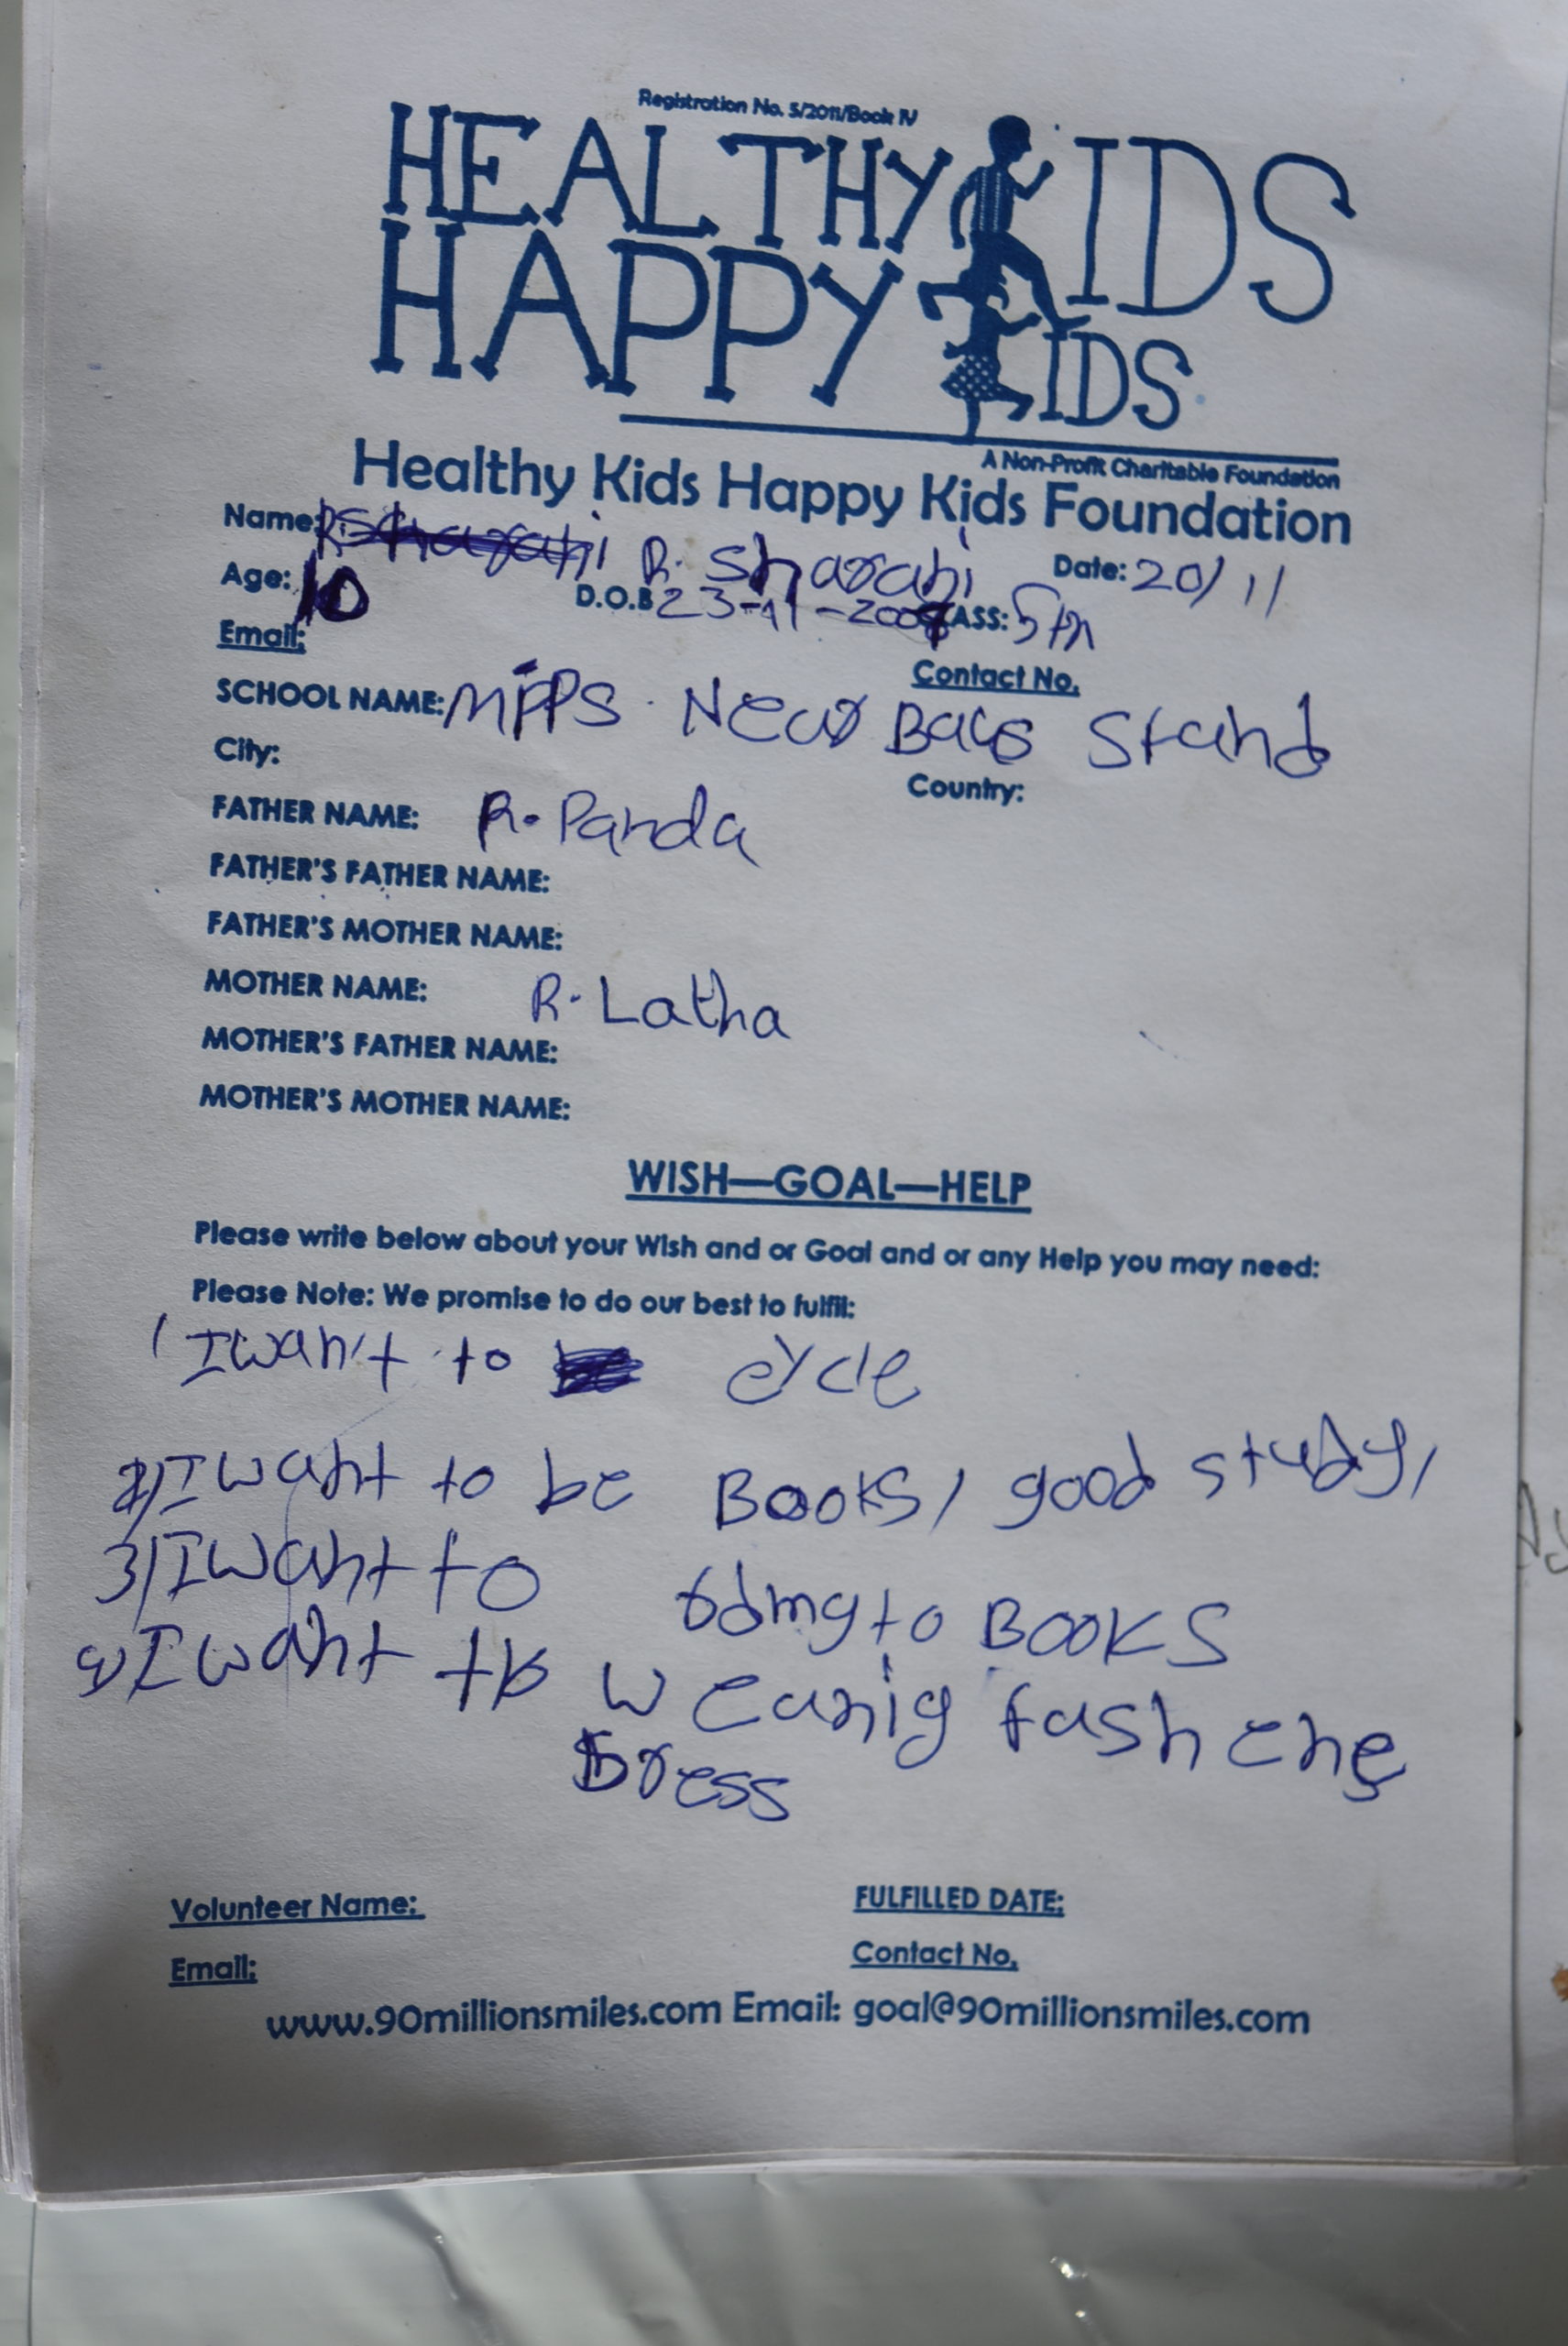 Registration No. 5/2011/Book IV
HEALTHY KIDS
HAPPY KIDS
A Non-Profit Charitable Foundation
Healthy Kids Happy Kids Foundation
Name: R. Sharahi Date: 20/11
Age: 10 D.O.B 23-11-200 ASS: 5th
Email:
Contact No.
SCHOOL NAME: MPPS Near Bus Stand
City:
Country:
FATHER NAME: R. Panda
FATHER'S FATHER NAME:
FATHER'S MOTHER NAME:
MOTHER NAME: R. Latha
MOTHER'S FATHER NAME:
MOTHER'S MOTHER NAME:
WISH—GOAL—HELP
Please write below about your Wish and or Goal and or any Help you may need:
Please Note: We promise to do our best to fulfil:
1 I wan't to cycle
2) I want to be Books, good study,
3) I want to to BOOKS
4) I want to wearig fashene
Dress
Volunteer Name: FULFILLED DATE:
Email: Contact No.
www.90millionsmiles.com Email: goal@90millionsmiles.com